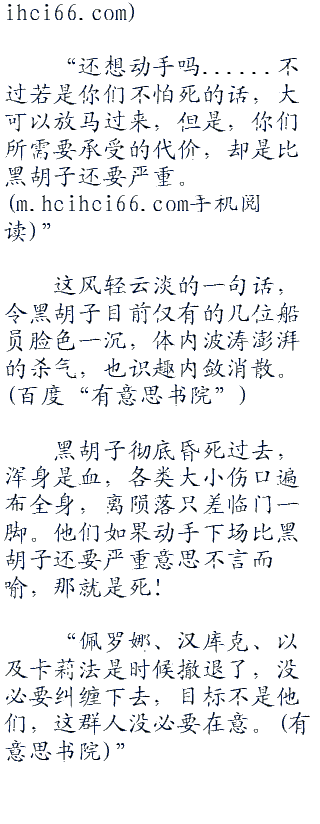 ihci66.com)
“还想动手吗......不
过若是你们不怕死的话，大
可以放马过来，但是，你们
所需要承受的代价，却是比
黑胡子还要严重。
(m.hcihci66.com手机阅
读)”
这风轻云淡的一句话，
令黑胡子目前仅有的几位船
员脸色一沉，体内波涛澎湃
的杀气，也识趣内敛消散。
(百度“有意思书院”)
黑胡子彻底昏死过去，
浑身是血，各类大小伤口遍
布全身，离陨落只差临门一
脚。他们如果动手下场比黑
胡子还要严重意思不言而
喻，那就是死!
“佩罗娜、汉库克、以
及卡莉法是时候撤退了，没
必要纠缠下去，目标不是他
们，这群人没必要在意。(有
意思书院)”